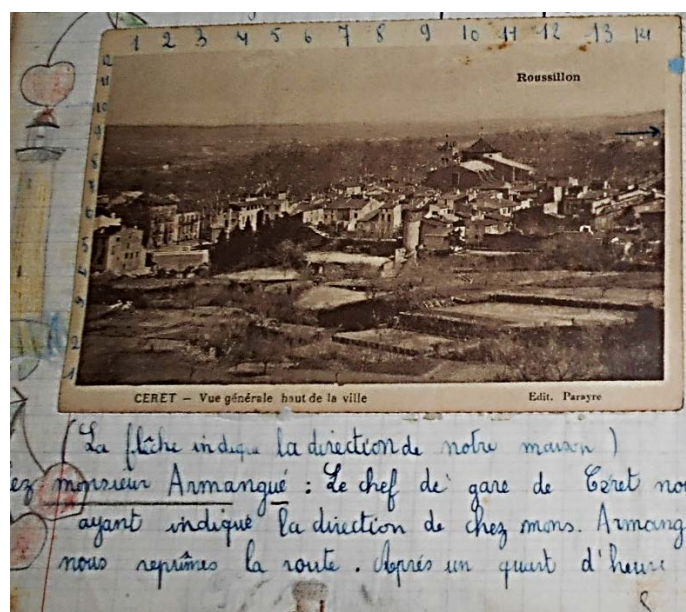 1 2 3 4 5 6 7 8 9 10 11 12 13 14
12
11
10
9
8
7
6
5
4
3
2
1
Roussillon
CERET — Vue générale haut de la ville
Edit. Parayre
(La flèche indique la direction de notre maison)
ez monsieur Armangué : Le chef de gare de Céret no
ayant indiqué la direction de chez mons. Armang
nous reprîmes la route. Après un quart d'heure
8